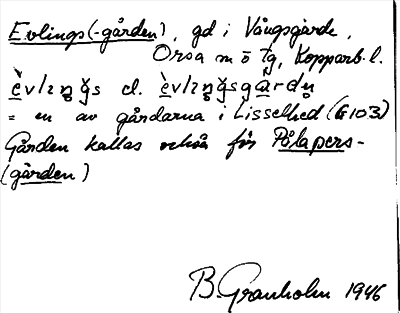 Evlings(-gården), gd i Vångsgärde,
Orsa m ö tg, Kopparb. l.
el.
= en av gårdarna i Lisselhed (G103)
Gården kallas också för Pålapers-
(gården)
B. Granholm 1946